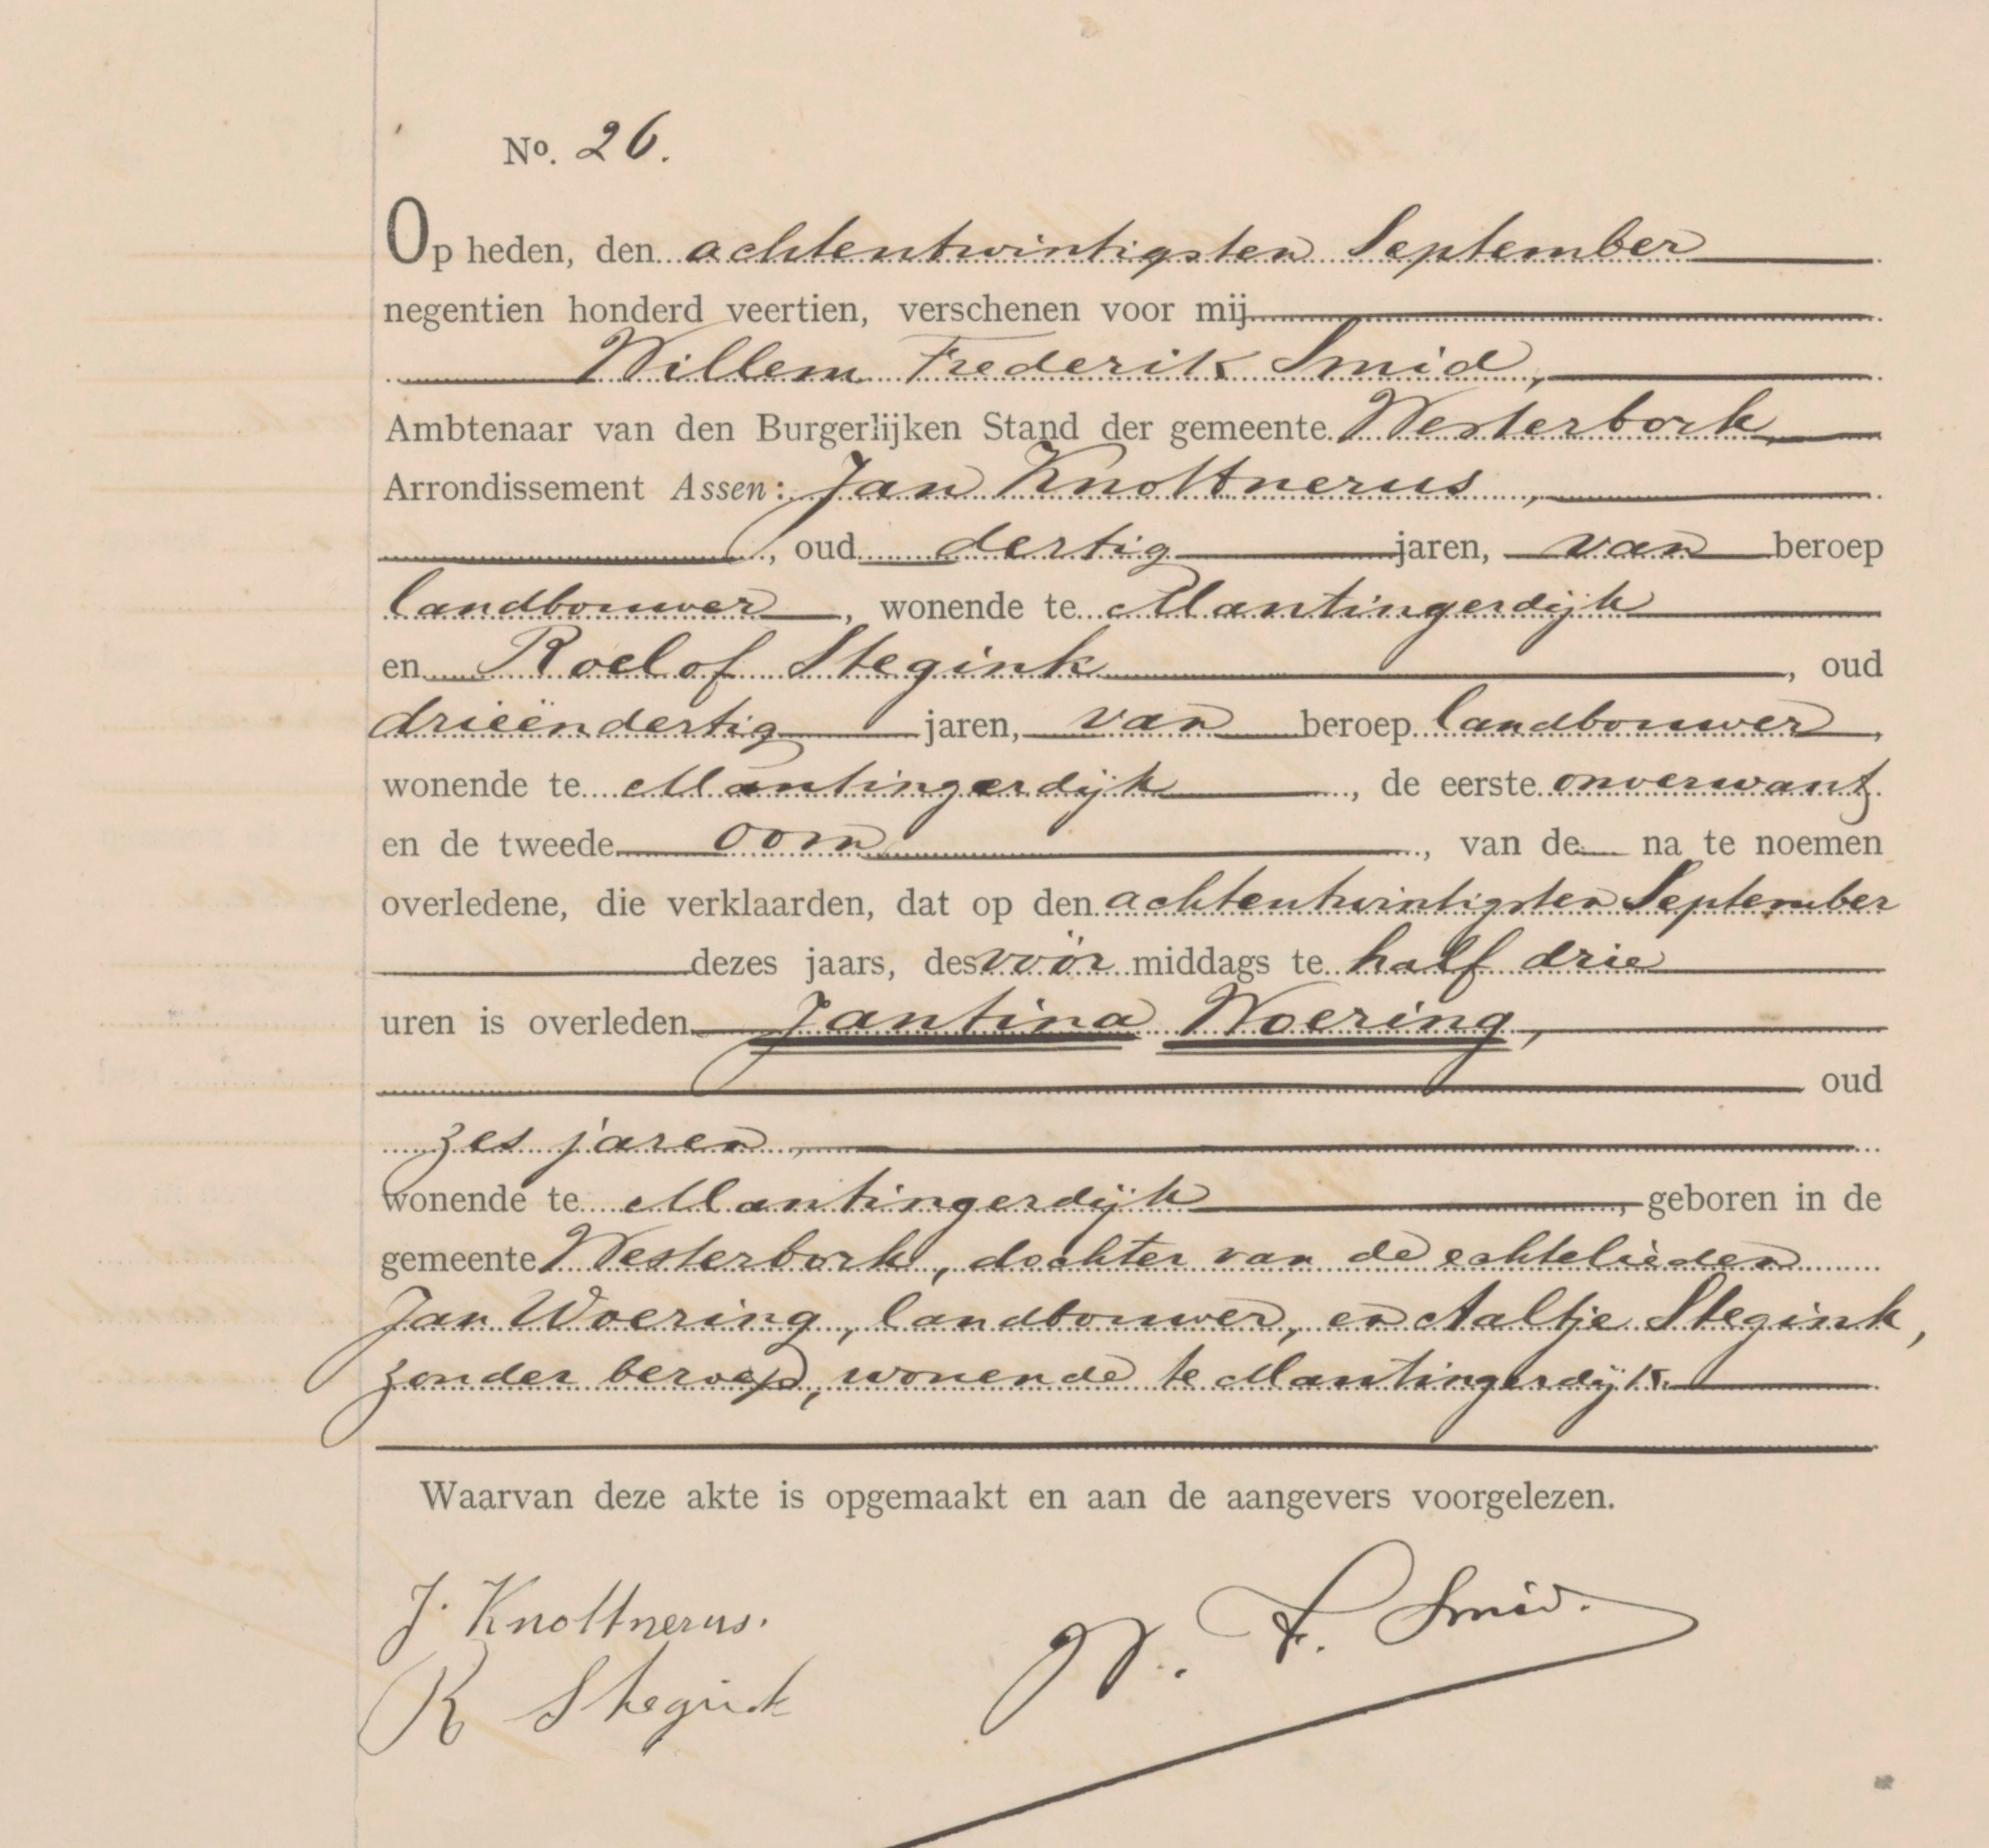 No. 26.
Op heden, den achtentwintigsten September
negentien honderd veertien, verschenen voor mij
Willem Frederik Smid,
Ambtenaar van den Burgerlijken Stand der gemeente Westerbork,
Arrondissement Assen: Jan Knottnerus,
, oud dertig jaren, van beroep
landbouwer, wonende te Mantingerdijk
en Roelof Stegink, oud
drieëndertig jaren, van beroep landbouwer,
wonende te Mantingerdijk, de eerste onverwant
en de tweede oom, van de na te noemen
overledene, die verklaarden, dat op den achtentwintigsten September
dezes jaars, des voor middags te half drie
uren is overleden Jantina Woering,
oud
zes jaren,
wonende te Mantingerdijk, geboren in de
gemeente Westerbork, dochter van de echtelieden
Jan Woering, landbouwer, en Aaltje Stegink,
zonder beroep, wonende te Mantingerdijk.
Waarvan deze akte is opgemaakt en aan de aangevers voorgelezen.
J. Knottnerus.
W. F. Smid.
R Stegink